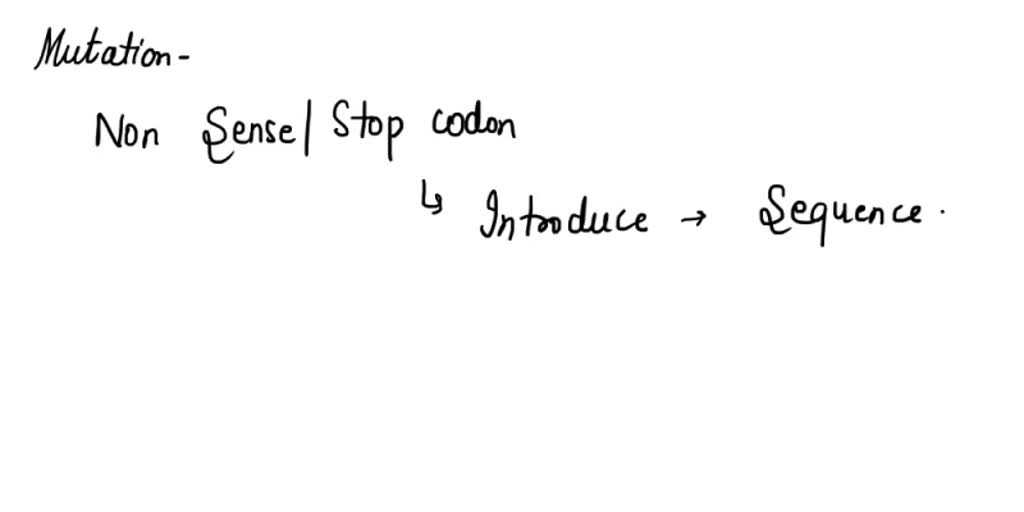 Mutation -
Non Sense/ Stop codon
↳ Introduce → Sequence.